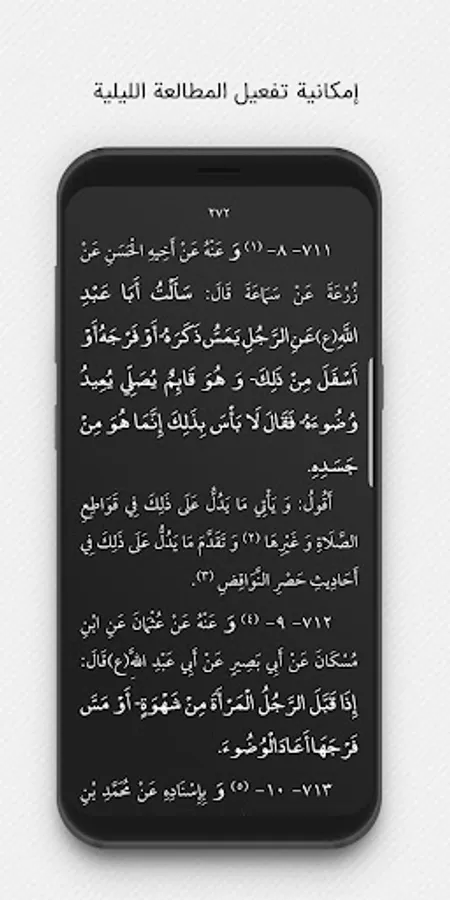 إمكانية تفعيل المطالعة الليلية
٢٧٢
٧١١- ٨- (١) وَ عَنْهُ عَنْ أَخِيهِ الْحَسَنِ عَنْ
زُرْعَةَ عَنْ سَمَاعَةَ قَالَ: سَأَلْتُ أَبَا عَبْدِ
اللَّهِ(ع)عَنِ الرَّجُلِ يَمَسُّ ذَكَرَهُ- أَوْ فَرْجَهُ أَوْ
أَسْفَلَ مِنْ ذَلِكَ- وَ هُوَ قَائِمٌ يُصَلِّي يُعِيدُ
وُضُوءَهُ- فَقَالَ لَا بَأْسَ بِذَلِكَ إِنَّمَا هُوَ مِنْ
جَسَدِهِ.
أَقُولُ: وَ يَأْتِي مَا يَدُلُّ عَلَى ذَلِكَ فِي قَوَاطِعِ
الصَّلَاةِ وَ غَيْرِهَا (٢) وَ تَقَدَّمَ مَا يَدُلُّ عَلَى ذَلِكَ فِي
أَحَادِيثِ حَصْرِ النَّوَاقِضِ (٣).
٧١٢- ٩- (٤) وَ عَنْهُ عَنْ عُثْمَانَ عَنِ ابْنِ
مُسْكَانَ عَنْ أَبِي بَصِيرٍ عَنْ أَبِي عَبْدِ اللَّهِ(ع)قَالَ:
إِذَا قَبَّلَ الرَّجُلُ الْمَرْأَةَ مِنْ شَهْوَةٍ- أَوْ مَسَّ
فَرْجَهَا أَعَادَ الْوُضُوءَ.
٧١٣- ١٠- (٥) وَ بِإِسْنَادِهِ عَنْ مُحَمَّدِ بْنِ